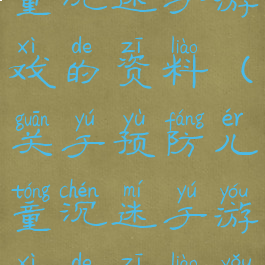 童沉迷于游
xì de zī liào
戏的资料（
guān yú yù fáng ér
关于预防儿
tóng chén mí yú yóu
童沉迷于游
xì de zī liào yǒu